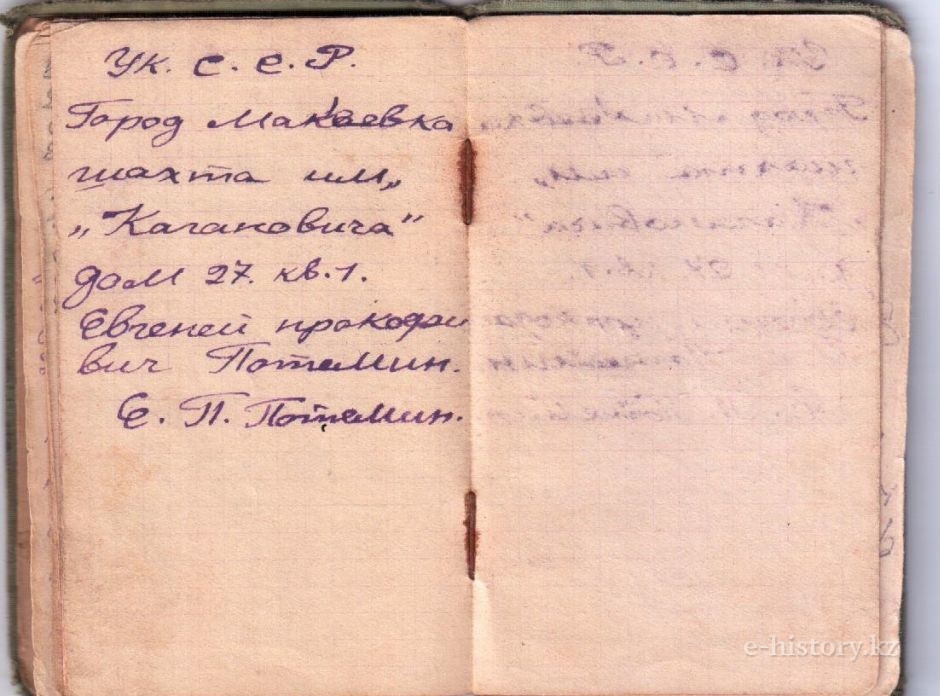 Ук. С. С. Р.
Город Макеевка
шахта им„
„Кагановича"
дом 27. кв. 1.
Евгеней прокофи
вич Потемин.
Е. П. Потемин.
e-history.kz